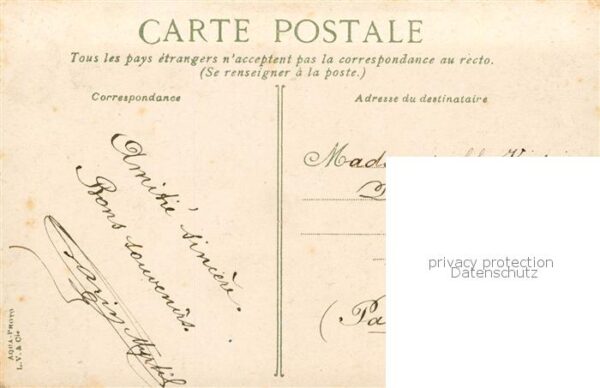 CARTE POSTALE
Tous les pays étrangers n'acceptent pas la correspondance au recto.
(Se renseigner à la poste.)
Correspondance
Amitié sinière.
Bons souvenirs.
AQUA-PHOTO
L.V. & Cie
Adresse du destinataire
(Pa
privacy protection
Datenschutz